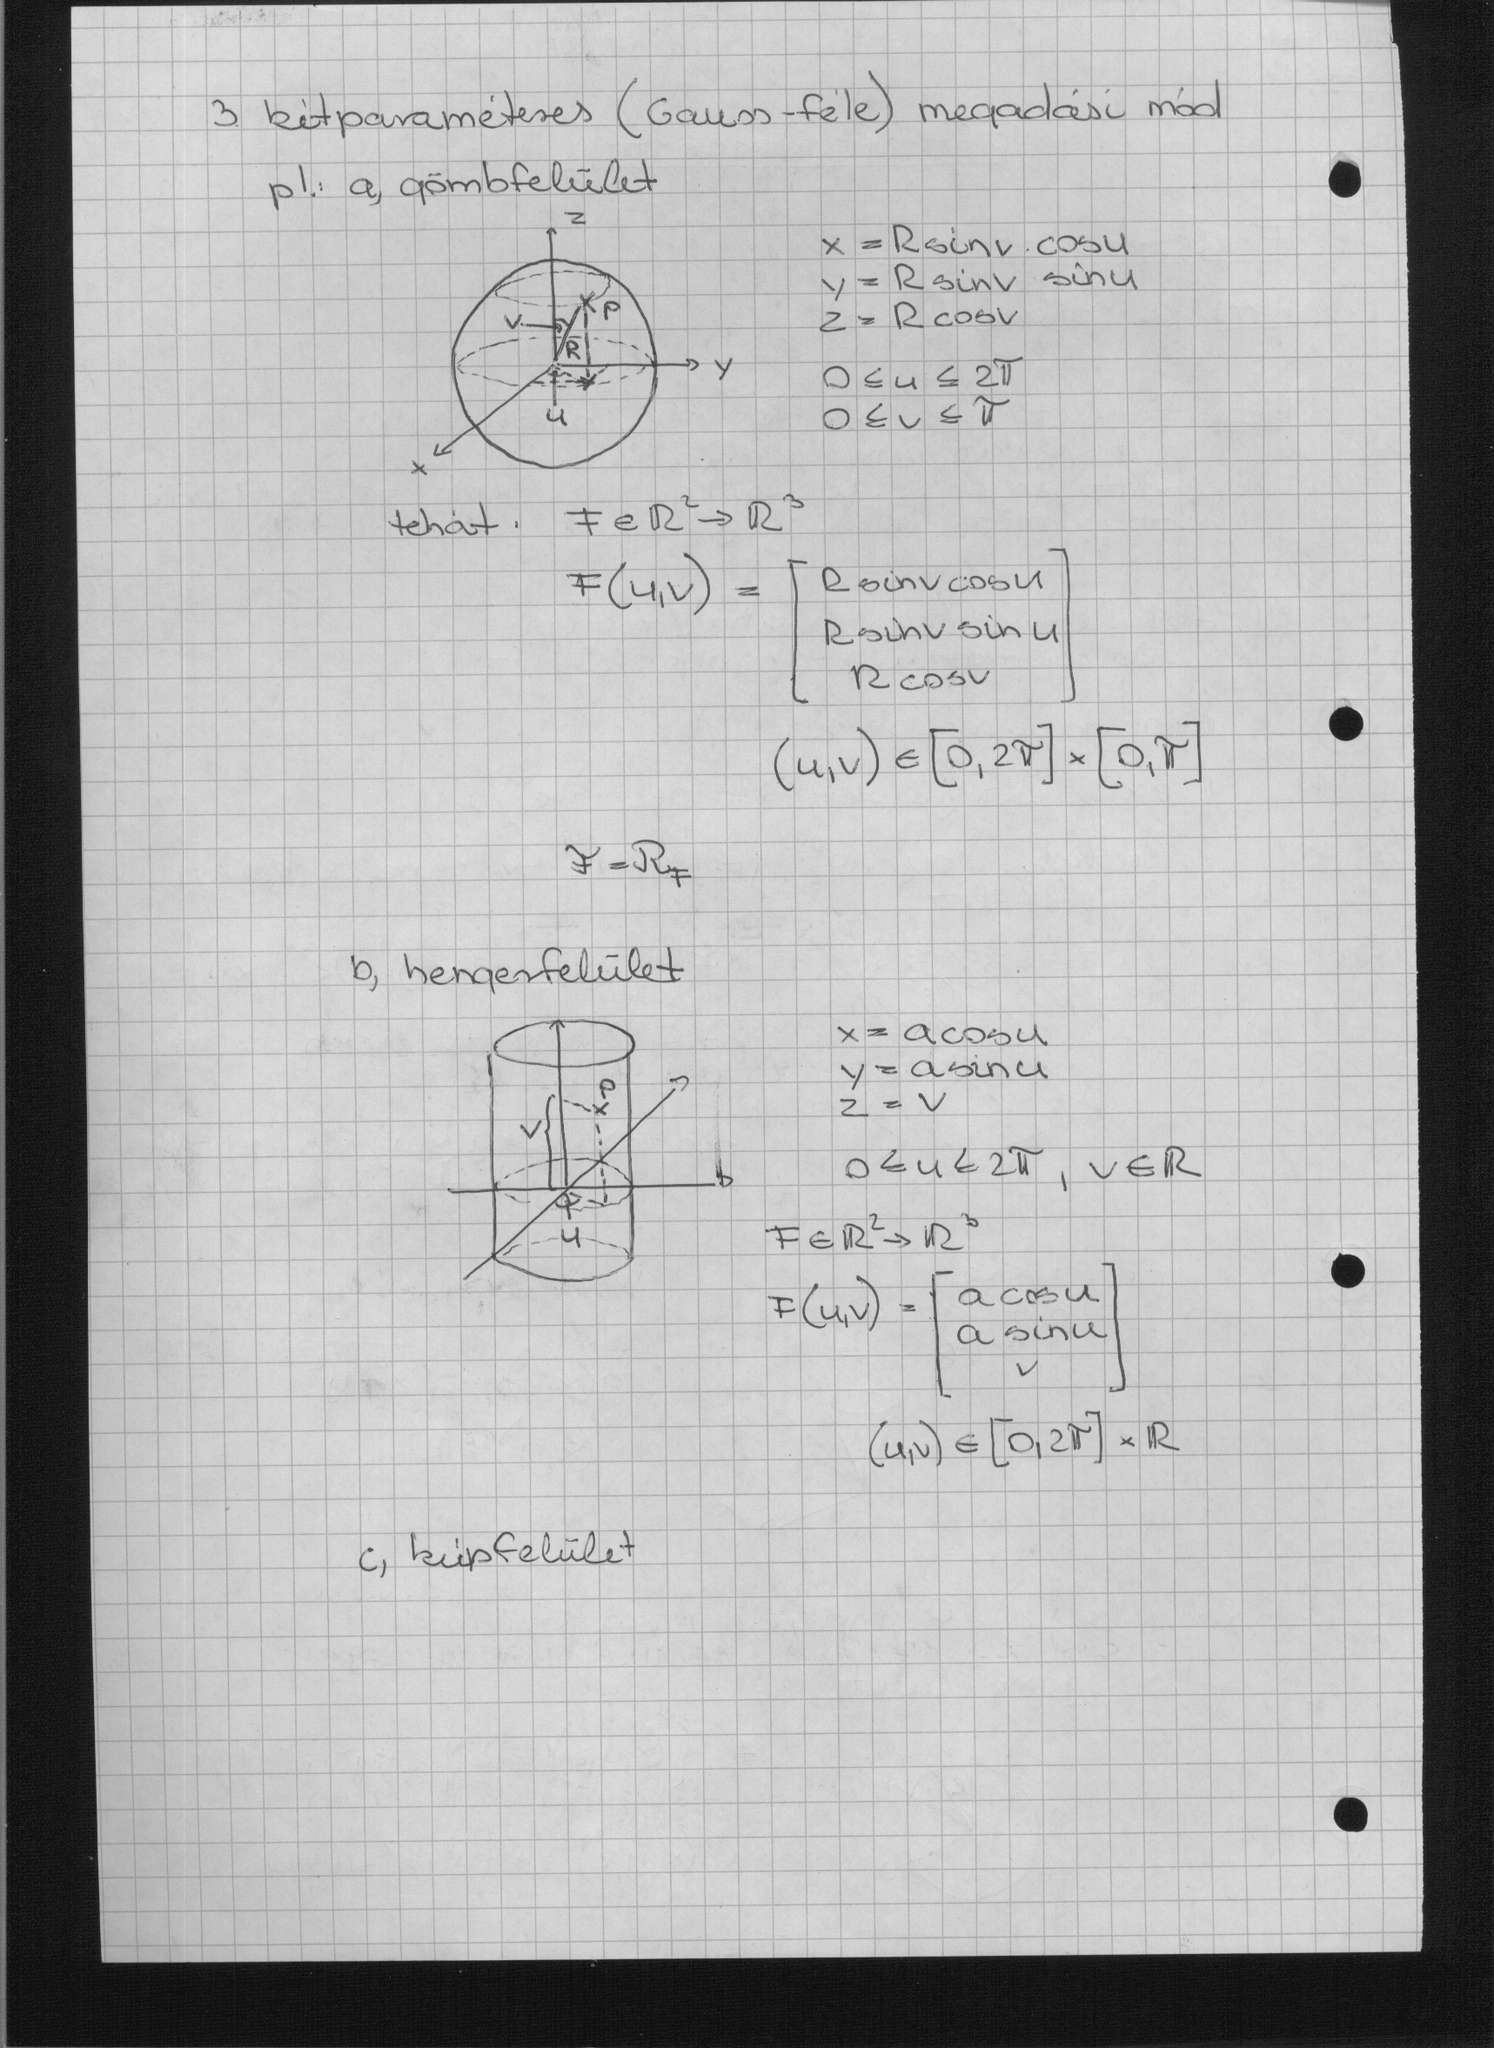 3. kétparaméteres (Gauss-féle) megadási mód
pl.: a, gömbfelület
z
v
P
R
y
u
x
x = R sinv · cosu
y = R sinv sinu
z = R cosv
0 ≤ u ≤ 2π
0 ≤ v ≤ π
tehát: F ∈ ℝ² → ℝ³
F(u,v) = [ R sinv cosu
R sinv sinu
R cosv ]
(u,v) ∈ [0, 2π] × [0, π]
ℱ = R_F
b, hengerfelület
P
v
u
x = a cosu
y = a sinu
z = v
0 ≤ u ≤ 2π, v ∈ ℝ
F ∈ ℝ² → ℝ³
F(u,v) = [ a cosu
a sinu
v ]
(u,v) ∈ [0, 2π] × ℝ
c, kúpfelület